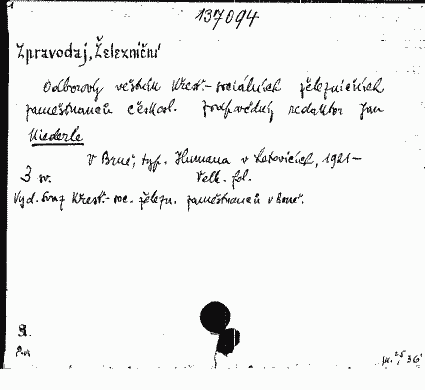 137094
Zpravodaj, Železniční
Odborový věstník křest.-sociálních železničních
zaměstnanců českosl. Zodpovědný redaktor Jan
Niederle
V Brně, typ. Humana v Letovicích, 1921-
3 sv. Velk. fol.
Vyd. Svaz křest.-soc. želézn. zaměstnanců v Brně.